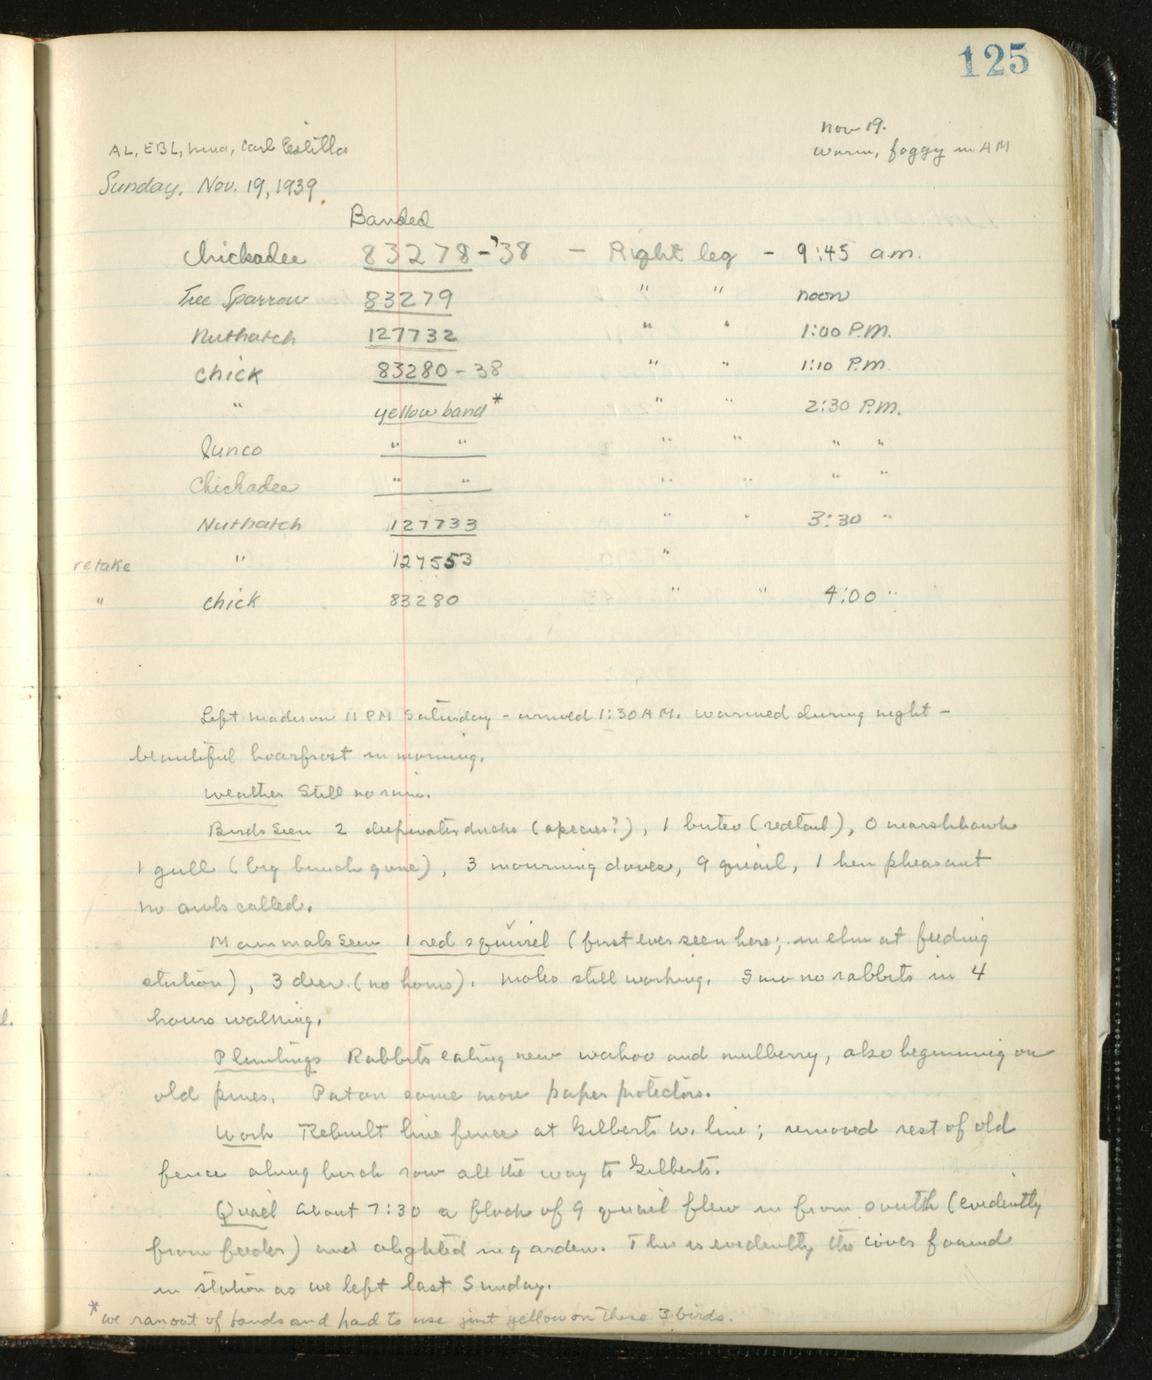 125
Nov 19.
AL, EBL, Nina, Carl Estella
warm, foggy in AM
Sunday, Nov. 19, 1939.
Banded
Chickadee 83278-'38 - Right leg - 9:45 a.m.
Tree Sparrow 83279 " " noon
Nuthatch 127732 " " 1:00 P.M.
Chick 83280-38 " " 1:10 P.M.
" yellow band* " " 2:30 P.M.
Junco " " " " " "
Chickadee " " " " " "
Nuthatch 127733 " " 3:30 "
retake " 127553 "
" Chick 83280 " " 4:00 "
Left Madison 11 PM Saturday - arrived 1:30 AM. Warmed during night -
beautiful hoarfrost in morning.
Weather Still no rain.
Birds Seen 2 deepwater ducks (species?), 1 buteo (redtail), 0 marshhawk
1 gull (big bunch gone), 3 mourning doves, 9 quail, 1 hen pheasant
no owls called.
Mammals Seen 1 red squirrel (first ever seen here; in elm at feeding
station), 3 deer (no horns). Moles still working. Saw no rabbits in 4
hours walking.
Plantings Rabbits eating new wahoo and mulberry, also beginning on
old pines. Put on some more paper protectors.
Work Rebuilt line fence at Gilberts W. line; removed rest of old
fence along birch row all the way to Gilberts.
Quail About 7:30 a flock of 9 quail flew in from south (evidently
from feeder) and alighted in garden. This is evidently the covey found
in station as we left last Sunday.
*we ran out of bands and had to use just yellow on these 3 birds.